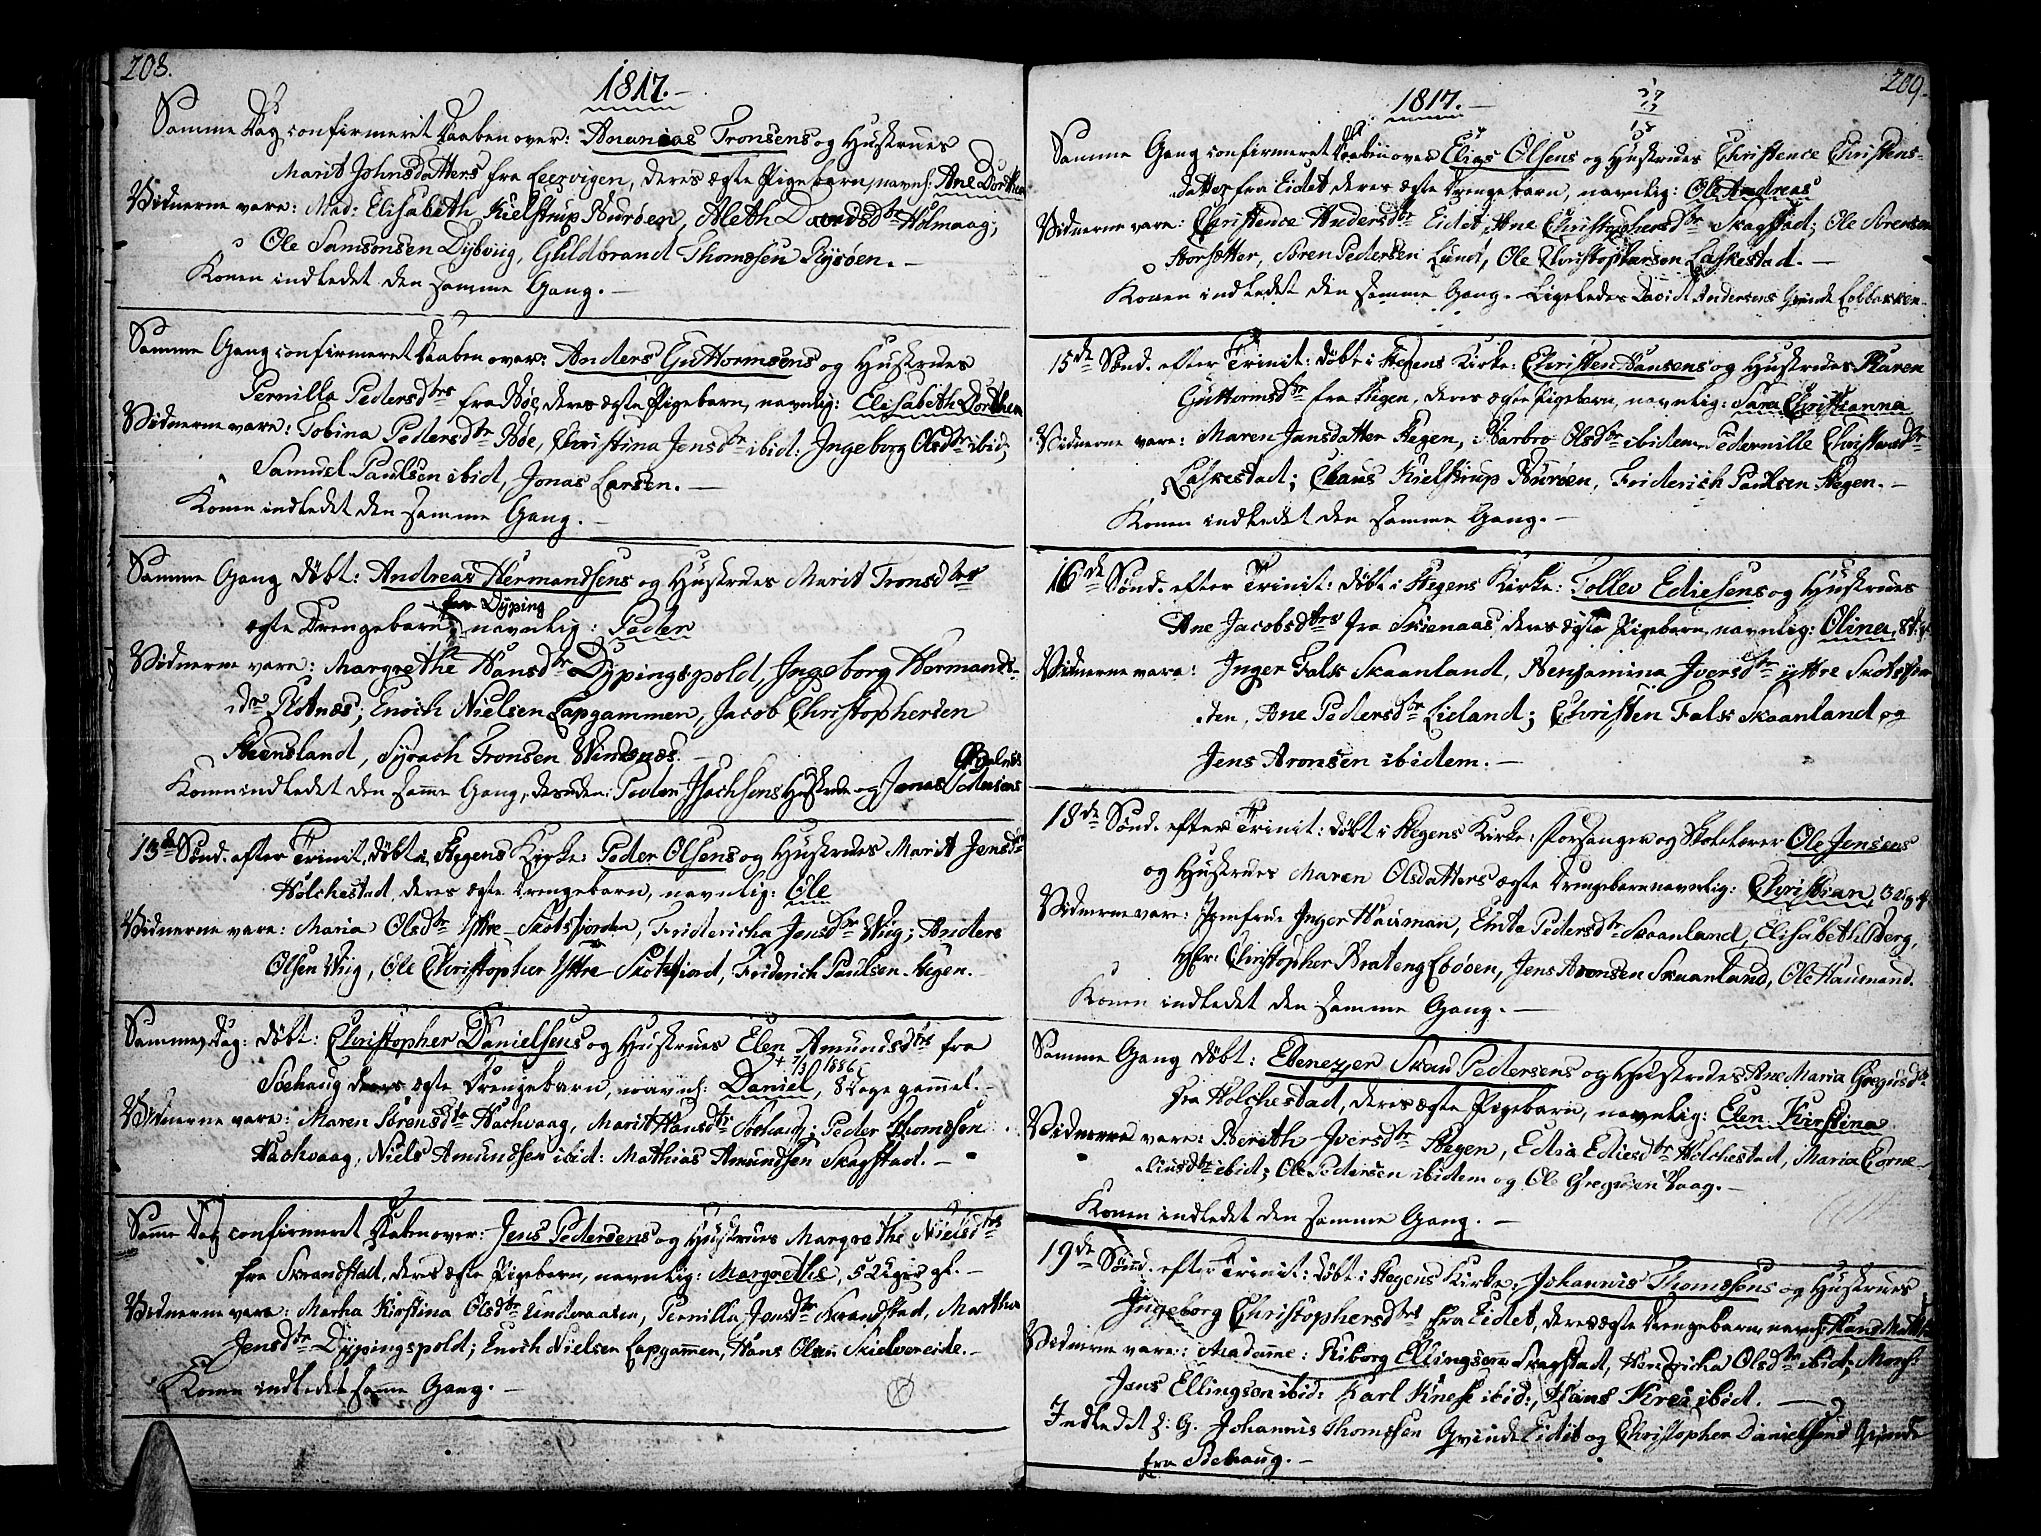 208.
1817.
Samme Dag confirmeret Daaben over: Ananias Tronsens og Hustrues
Marit Johnsdatters fra Leervigen, deres ægte Pigebarn, navnl: Ane Dorthea
Vidnerne vare: Mad: Elisabeth Kielstrup Burøen, Aleth Davidsdtr Holmaag;
Ole Samsonsen Dybvig, Guldbrand Thomesen Rysøen.
Konen indledet den samme Gang.
Samme Gang confirmeret Daaben over: Anders Guttormsens og Hustrues
Pernilla Pedersdtrs fra Bøe, deres ægte Pigebarn, navnlig: Elisabeth Dorthea
Vidnerne vare: Tobina Pedersdtr Bøe, Christina Jensdtr ibid: Ingeborg Olsdtr ibid;
Samuel Paulsen ibid, Jonas Larsen.
Konen indledet den samme Gang.
Samme Gang døbt: Andreas Hermandsens og Hustrues Marit Tronsdtrs
fra Dyping
ægte Drengebarn, navnlig: Peder
Vidnerne vare: Margrethe Hansdtr Dypingspold, Ingeborg Hermands-
dtr Flotnæs; Enoch Nielsen Lapgammen, Jacob Christophersen
Steensland, Syrach Tronsen Windnæs.
Konen indledet den samme Gang, desuden: Peder Isachsens Hustrue og Jonas
13de Sønd. efter Trinit, døbt i Stegens Kirke: Peder Olsens og Hustrues Marit Jensdtr
Holchestad, deres ægte Drengebarn, navnlig: Ole
Vidnerne vare: Maria Olsdtr Yttre-Skotsfjorden, Fridericha Jensdtr Wiig; Anders
Olsen Wiig, Ole Christopher Yttre Skotsfiord, Friderich Paulsen Stegen.
Samme Dag: døbt: Christopher Danielsens og Hustrues Elen Amundsdtrs fra
Soehaug deres ægte Drengebarn, navnl: Daniel, 8 Dage gammel.
Vidnerne vare: Maren Sørensdtr Hachvaag, Marit Hansdtr Soehaug; Peder Thomesen
Hachvaag, Niels Amundsen ibid: Mathias Amundsen Skagstad.
Samme Dag confirmeret Daaben over: Jens Pedersens og Hustrues Margrethe Nielsdtrs
fra Skrandstad, deres ægte Pigebarn, navnlig: Margrethe, 5 Uger gl.
Vidnerne vare: Martha Kirstina Olsdtr Underaasen, Pernilla Jensdtr Skrandstad, Martha
Jensdtr Dypingspold; Enoch Nielsen Lapgammen, Hans Olsen Skielvereide.
Konen indledet samme Gang.
209.
1817.
Samme Gang confirmeret Daaben over Elias Olsens og Hustrues Christence Christens-
datter fra Eidet deres ægte Drengebarn, navnlig: Ole Andreas
Vidnerne vare: Christence Andersdtr Eidet, Ane Christophersdtr Skagstad; Ole Sørensen
Storsætter, Søren Pedersen Lund, Ole Christophersen Laskestad.
Konen indledet den samme Gang. Ligeledes David Andersens Qvinde Lobbakken.
15de Sønd. efter Trinit: døbt i Stegens Kirke: Christen Hansens og Hustrues Karen
Guttormsdtr fra Stegen, deres ægte Pigebarn, navnlig: Sara Christianna
Vidnerne vare: Maren Jansdatter Stegen, Barbro Olsdtr ibidem Pedernille Christensdtr
Laskestad; Claus Kielstrup Burøen, Friderich Paulsen Stegen.
Konen indledet den samme Gang.
16de Sønd. efter Trinit: døbt i Stegens Kirke: Tollev Ediesens og Hustrues
Ane Jacobsdtrs fra Skienaas, deres ægte Pigebarn, navnlig: Olina
Vidnerne vare: Inger Falk Skaanland, Benjamina Iversdtr yttre Skotsfior-
den, Ane Pedersdtr Lieland; Christen Falk Skaanland og
Jens Aronsen ibidem.
18de Sønd. efter Trinit: døbt i Stegens Kirke: Forsanger og Skolelærer Ole Jensens
og Hustrues Maren Olsdatters ægte Drengebarn navnlig: Christian
Vidnerne vare: Jomfrue Inger Hausman, Elnta Pedersdtr Skaanland, Elisabeth Berg,
Hr: Christopher Brateng Lødøen, Jens Aronsen Skaanland, Ole Hausmand.
Konen indledet den samme Gang.
Samme Gang døbt: Ebenezer Skau Pedersens og Hustrues Ane Maria Gregusdtr
fra Holchestad, deres ægte Pigebarn, navnlig: Elen Kirstina
Vidnerne vare: Bereth Iversdtr Stegen, Edia Ediesdtr Holchestad, Maria Corne-
liusdtr ibid; Ole Pedersen ibidem og Ole Gregusen Vaag.
Konen indledet den samme Gang.
19de Sønd. efter Trinit: døbt i Stegens Kirke: Johannis Thomesens og Hustrues
Ingeborg Christophersdtrs fra Eidet, deres ægte Drengebarn, navnl: Hans
Vidnerne vare: Madame: Kiborg Ellingsen Skagstad, Hendricha Olsdtr ibid; Mons:
Jens Ellingsen ibid: Karl Knes ibid:, Hans Kres ibid.
Indledet s: G. Johannis Thomesen Qvinde Eidet og Christopher Danielsens Qvinde
fra Soehaug.